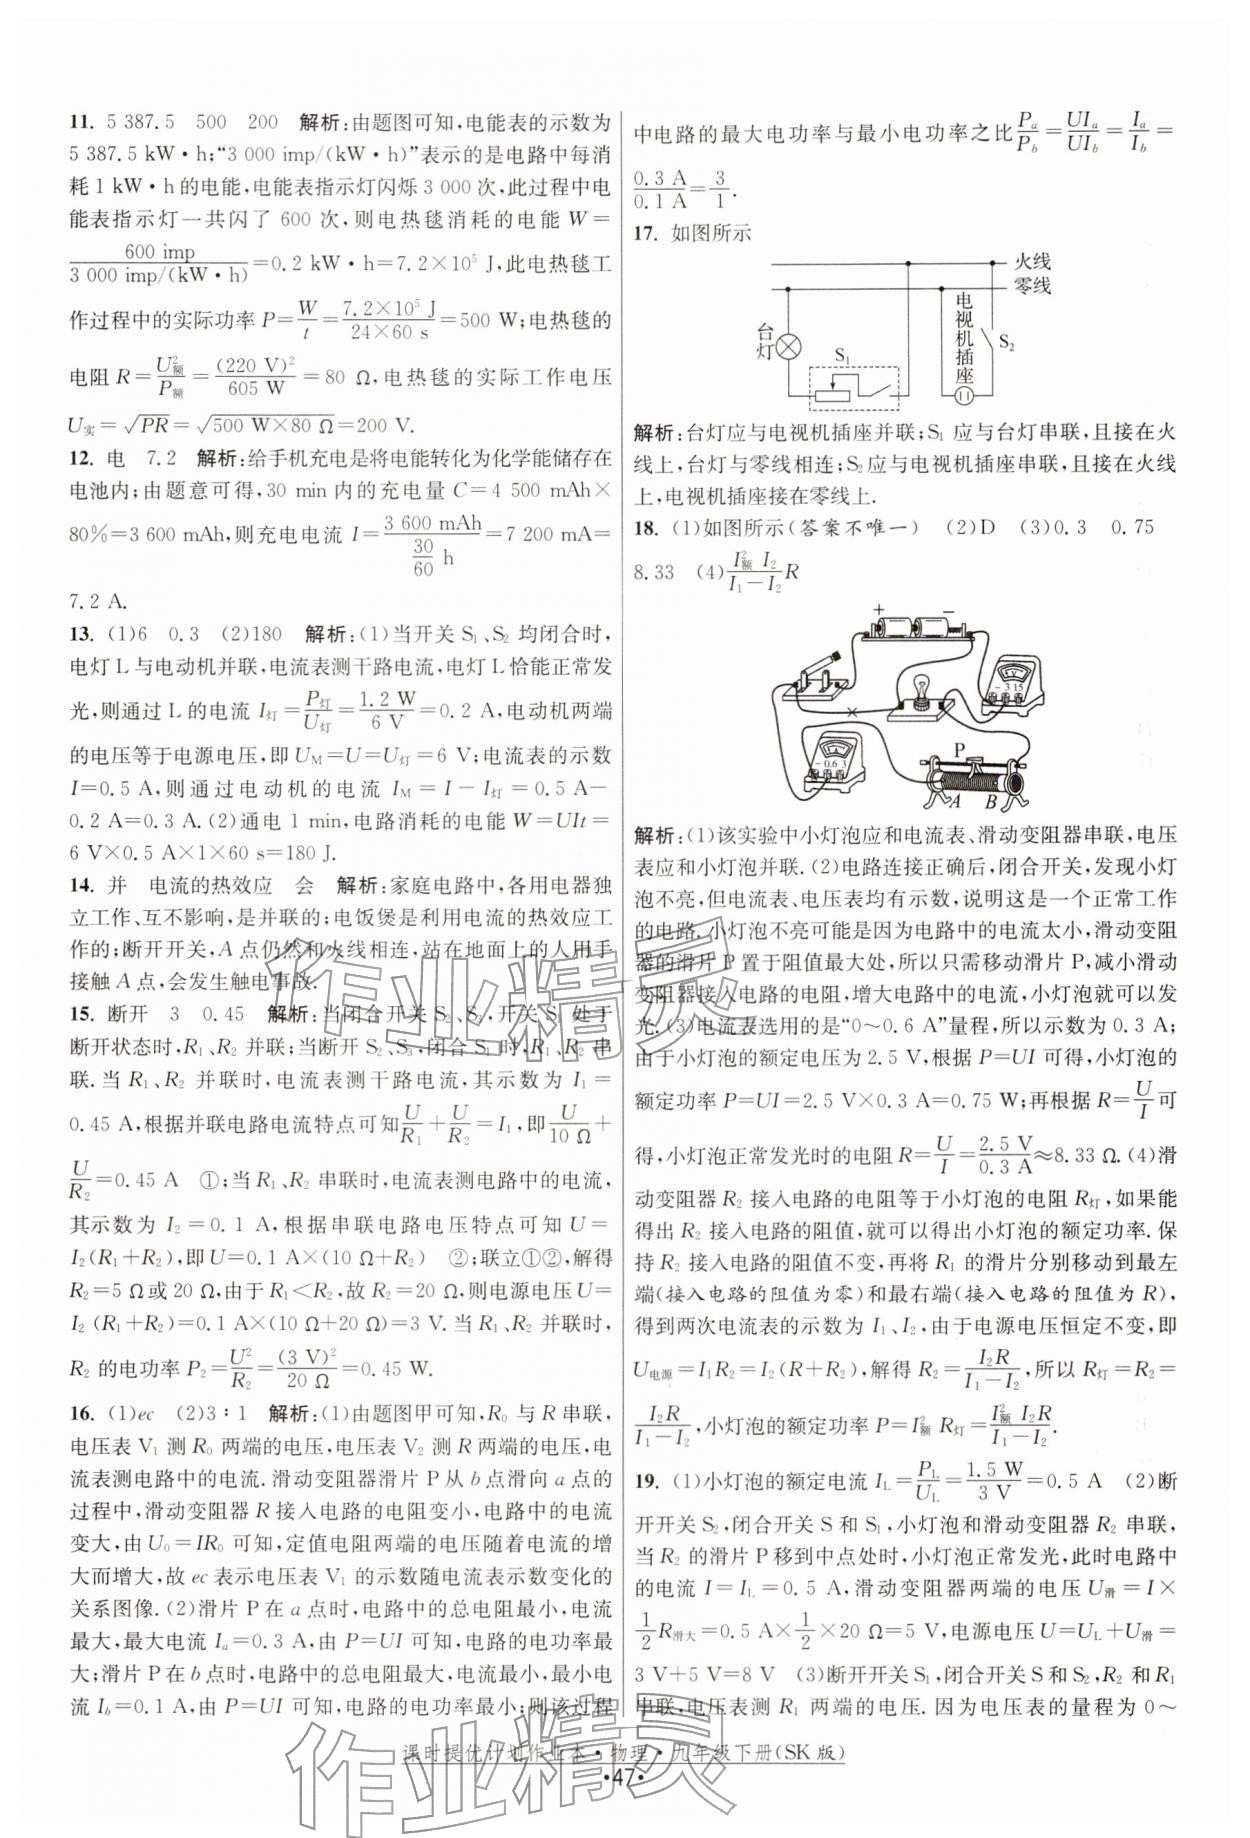 11. 5 387.5　500　200　解析:由题图可知,电能表的示数为
5 387.5 kW·h;“3 000 imp/(kW·h)”表示的是电路中每消
耗1 kW·h的电能,电能表指示灯闪烁3 000次,此过程中电
能表指示灯一共闪了600次,则电热毯消耗的电能W=
600 imp/3 000 imp/(kW·h)=0.2 kW·h=7.2×10⁵ J,此电热毯工
作过程中的实际功率P=W/t=7.2×10⁵ J/24×60 s=500 W;电热毯的
电阻R=U²额/P额=(220 V)²/605 W=80 Ω,电热毯的实际工作电压
U实=√PR=√500 W×80 Ω=200 V.
12. 电　7.2　解析:给手机充电是将电能转化为化学能储存在
电池内;由题意可得,30 min内的充电量C=4 500 mAh×
80%=3 600 mAh,则充电电流I=3 600 mAh/(30/60 h)=7 200 mA=
7.2 A.
13. (1)6　0.3　(2)180　解析:(1)当开关S₁、S₂均闭合时,
电灯L与电动机并联,电流表测干路电流,电灯L恰能正常发
光,则通过L的电流I灯=P灯/U灯=1.2 W/6 V=0.2 A,电动机两端
的电压等于电源电压,即UM=U=U灯=6 V;电流表的示数
I=0.5 A,则通过电动机的电流IM=I-I灯=0.5 A-
0.2 A=0.3 A.(2)通电1 min,电路消耗的电能W=UIt=
6 V×0.5 A×1×60 s=180 J.
14. 并　电流的热效应　会　解析:家庭电路中,各用电器独
立工作、互不影响,是并联的;电饭煲是利用电流的热效应工
作的;断开开关,A点仍然和火线相连,站在地面上的人用手
接触A点,会发生触电事故.
15. 断开　3　0.45　解析:当闭合开关S₂、S₃,开关S₁处于
断开状态时,R₁、R₂并联;当断开S₂、S₃,闭合S₁时,R₁、R₂串
联.当R₁、R₂并联时,电流表测干路电流,其示数为I₁=
0.45 A,根据并联电路电流特点可知U/R₁+U/R₂=I₁,即U/10 Ω+
U/R₂=0.45 A　①;当R₁、R₂串联时,电流表测电路中的电流,
其示数为I₂=0.1 A,根据串联电路电压特点可知U=
I₂(R₁+R₂),即U=0.1 A×(10 Ω+R₂)　②;联立①②,解得
R₂=5 Ω或20 Ω,由于R₁<R₂,故R₂=20 Ω,则电源电压U=
I₂(R₁+R₂)=0.1 A×(10 Ω+20 Ω)=3 V.当R₁、R₂并联时,
R₂的电功率P₂=U²/R₂=(3 V)²/20 Ω=0.45 W.
16. (1)ec　(2)3∶1　解析:(1)由题图甲可知,R₀与R串联,
电压表V₁测R₀两端的电压,电压表V₂测R两端的电压,电
流表测电路中的电流.滑动变阻器滑片P从b点滑向a点的
过程中,滑动变阻器R接入电路的电阻变小,电路中的电流
变大,由U₀=IR₀可知,定值电阻两端的电压随着电流的增
大而增大,故ec表示电压表V₁的示数随电流表示数变化的
关系图像.(2)滑片P在a点时,电路中的总电阻最小,电流
最大,最大电流Iₐ=0.3 A,由P=UI可知,电路的电功率最
大;滑片P在b点时,电路中的总电阻最大,电流最小,最小电
流I_b=0.1 A,由P=UI可知,电路的电功率最小;则该过程
中电路的最大电功率与最小电功率之比Pₐ/P_b=UIₐ/UI_b=Iₐ/I_b=
0.3 A/0.1 A=3/1.
17. 如图所示
火线
零线
台灯
S₁
电视机插座
S₂
解析:台灯应与电视机插座并联;S₁应与台灯串联,且接在火
线上,台灯与零线相连;S₂应与电视机插座串联,且接在火线
上,电视机插座接在零线上.
18. (1)如图所示(答案不唯一)　(2)D　(3)0.3　0.75
8.33　(4)I²额 I₂/(I₁-I₂) R
+ -
V
- 3 15
-0.6 3
P
A B
解析:(1)该实验中小灯泡应和电流表、滑动变阻器串联,电压
表应和小灯泡并联.(2)电路连接正确后,闭合开关,发现小灯
泡不亮,但电流表、电压表均有示数,说明这是一个正常工作
的电路.小灯泡不亮可能是因为电路中的电流太小,滑动变阻
器的滑片P置于阻值最大处,所以只需移动滑片P,减小滑动
变阻器接入电路的电阻,增大电路中的电流,小灯泡就可以发
光.(3)电流表选用的是“0~0.6 A”量程,所以示数为0.3 A;
由于小灯泡的额定电压为2.5 V,根据P=UI可得,小灯泡的
额定功率P=UI=2.5 V×0.3 A=0.75 W;再根据R=U/I可
得,小灯泡正常发光时的电阻R=U/I=2.5 V/0.3 A≈8.33 Ω.(4)滑
动变阻器R₂接入电路的电阻等于小灯泡的电阻R灯,如果能
得出R₂接入电路的阻值,就可以得出小灯泡的额定功率.保
持R₂接入电路的阻值不变,再将R₁的滑片分别移动到最左
端(接入电路的阻值为零)和最右端(接入电路的阻值为R),
得到两次电流表的示数为I₁、I₂,由于电源电压恒定不变,即
U电源=I₁R₂=I₂(R+R₂),解得R₂=I₂R/(I₁-I₂),所以R灯=R₂=
I₂R/(I₁-I₂),小灯泡的额定功率P=I²额 R灯=I²额 I₂R/(I₁-I₂).
19. (1)小灯泡的额定电流I_L=P_L/U_L=1.5 W/3 V=0.5 A　(2)断
开开关S₂,闭合开关S和S₁,小灯泡和滑动变阻器R₂串联,
当R₂的滑片P移到中点处时,小灯泡正常发光,此时电路中
的电流I=I_L=0.5 A,滑动变阻器两端的电压U滑=I×
1/2 R滑大=0.5 A×1/2×20 Ω=5 V,电源电压U=U_L+U滑=
3 V+5 V=8 V　(3)断开开关S₁,闭合开关S和S₂,R和R₁
串联,电压表测R₁两端的电压.因为电压表的量程为0~
课时提优计划作业本·物理·九年级下册(SK版)
·47·
作业精灵
作业精灵